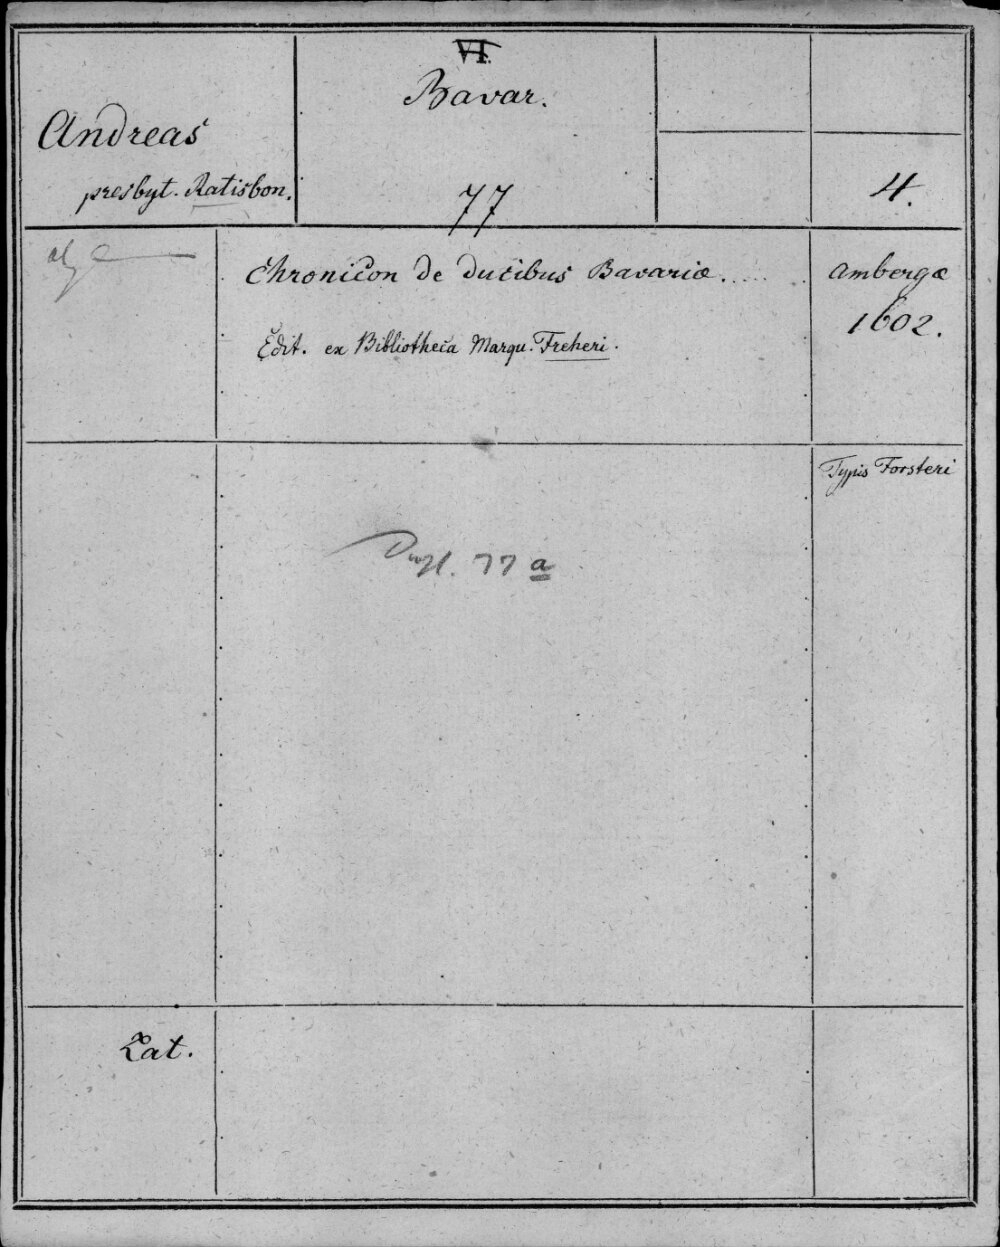 VI.
Bavar.
Andreas
presbyt. Ratisbon.
77
4.
Chronicon de ducibus Bavariæ.....
Ambergæ
1602.
Edit. ex Bibliotheca Marqu. Freheri.
Typis Forsteri
77 a
Lat.